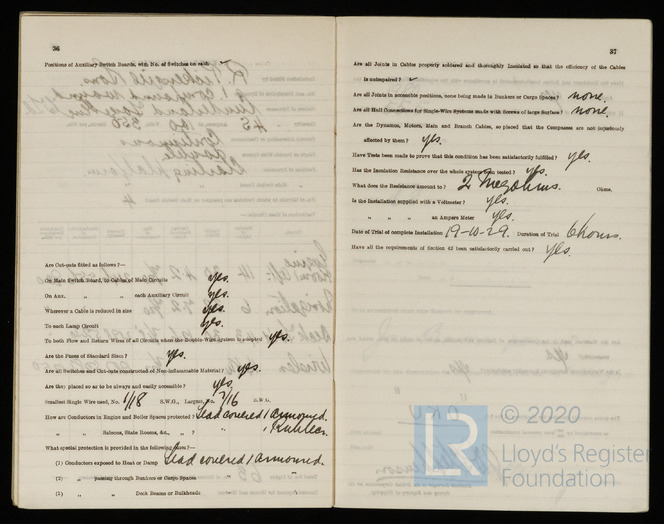 36
Positions of Auxiliary Switch Boards, with No. of Switches on each
Are Cut-outs fitted as follows?—
On Main Switch Board, to Cables of Main Circuits yes.
On Aux. „ „ each Auxiliary Circuit yes.
Wherever a Cable is reduced in size yes.
To each Lamp Circuit yes.
To both Flow and Return Wires of all Circuits when the Double-Wire system is adopted yes.
Are the Fuses of Standard Sizes? yes.
Are all Switches and Cut-outs constructed of Non-inflammable Material? yes.
Are they placed so as to be always and easily accessible? yes.
Smallest Single Wire used, No. 1/18 S.W.G., Largest, No. 7/16 S.W.G.
How are Conductors in Engine and Boiler Spaces protected? Lead covered & armoured.
„ „ Saloons, State Rooms, &c., „ ? „ & Rubber.
What special protection is provided in the following cases?—
(1) Conductors exposed to Heat or Damp Lead covered & armoured.
(2) „ passing through Bunkers or Cargo Spaces „
(3) „ „ Deck Beams or Bulkheads „
37
Are all Joints in Cables properly soldered and thoroughly insulated so that the efficiency of the Cables
is unimpaired?
Are all Joints in accessible positions, none being made in Bunkers or Cargo Spaces? none.
Are all Hull Connections for Single-Wire Systems made with Screws of large Surface? none.
Are the Dynamos, Motors, Main and Branch Cables, so placed that the Compasses are not injuriously
affected by them? yes.
Have Tests been made to prove that this condition has been satisfactorily fulfilled? yes.
Has the Insulation Resistance over the whole system been tested? yes.
What does the Resistance amount to? 2 Megohms. Ohms.
Is the Installation supplied with a Voltmeter? yes.
„ „ „ an Ampere Meter yes.
Date of Trial of complete Installation 19-10-29. Duration of Trial 6 hours.
Have all the requirements of Section 42 been satisfactorily carried out? yes.
LR
© 2020
Lloyd's Register
Foundation